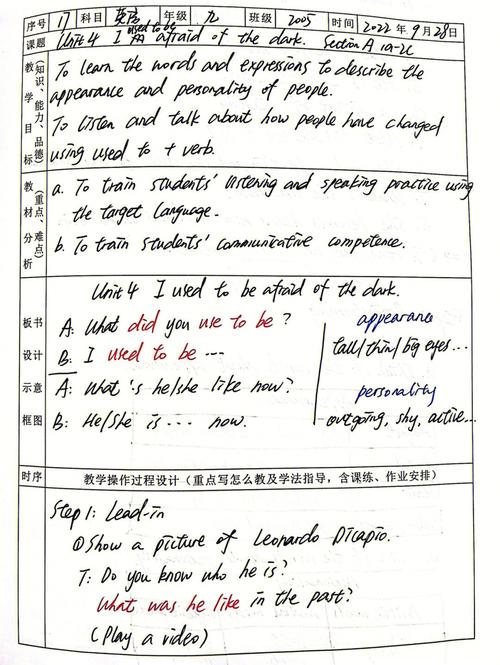 序号 17 科目 英语 年级 九 班级 2005 时间 2022年9月28日
课题 Unit 4 I used to be afraid of the dark. Section A 1a-2c
教学目标(知识、能力、品德)
To learn the words and expressions to describe the
appearance and personality of people.
To listen and talk about how people have changed
using used to + verb.
教材分析(重点、难点)
a. To train students' listening and speaking practice using
the target language.
b. To train students' communicative competence.
板书设计示意框图
Unit 4 I used to be afraid of the dark.
A: What did you use to be?
B: I used to be ...
A: What's he/she like now?
B: He/She is ... now.
appearance
tall/thin/big eyes...
personality
outgoing, shy, active...
时序 教学操作过程设计(重点写怎么教及学法指导,含课练、作业安排)
Step 1: Lead-in
①Show a picture of Leonardo Dicapio.
T: Do you know who he is?
What was he like in the past?
(Play a video)